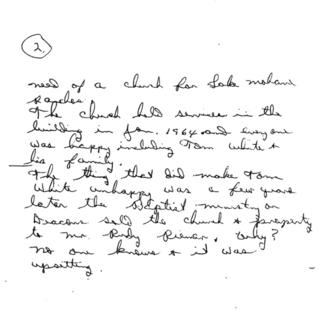 2.
need of a church for Lake Mohave
Ranchos.
The church held services in the
building in Jan. 1964 and everyone
was happy including Tom White &
his family.
The thing that did make Tom
White unhappy was a few years
later the Baptist ministry or
Deacons sold the church & property
to Mr. Rudy , why?
no one knows & it was
upsetting.